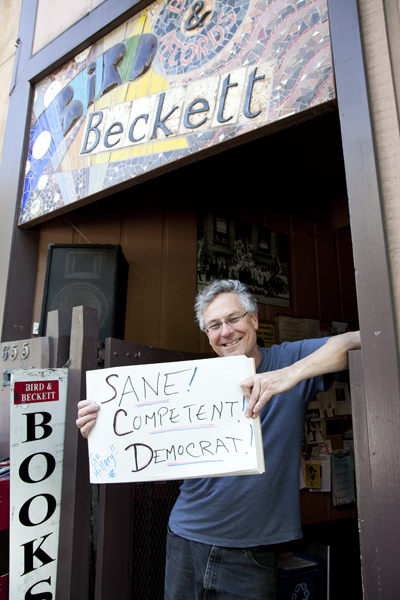 BIRD
&
RECORDS
Beckett
655
BIRD &
BECKETT
BOOKS
SANE!
COMPETENT!
DEMOCRAT!
Go
Hillary!!